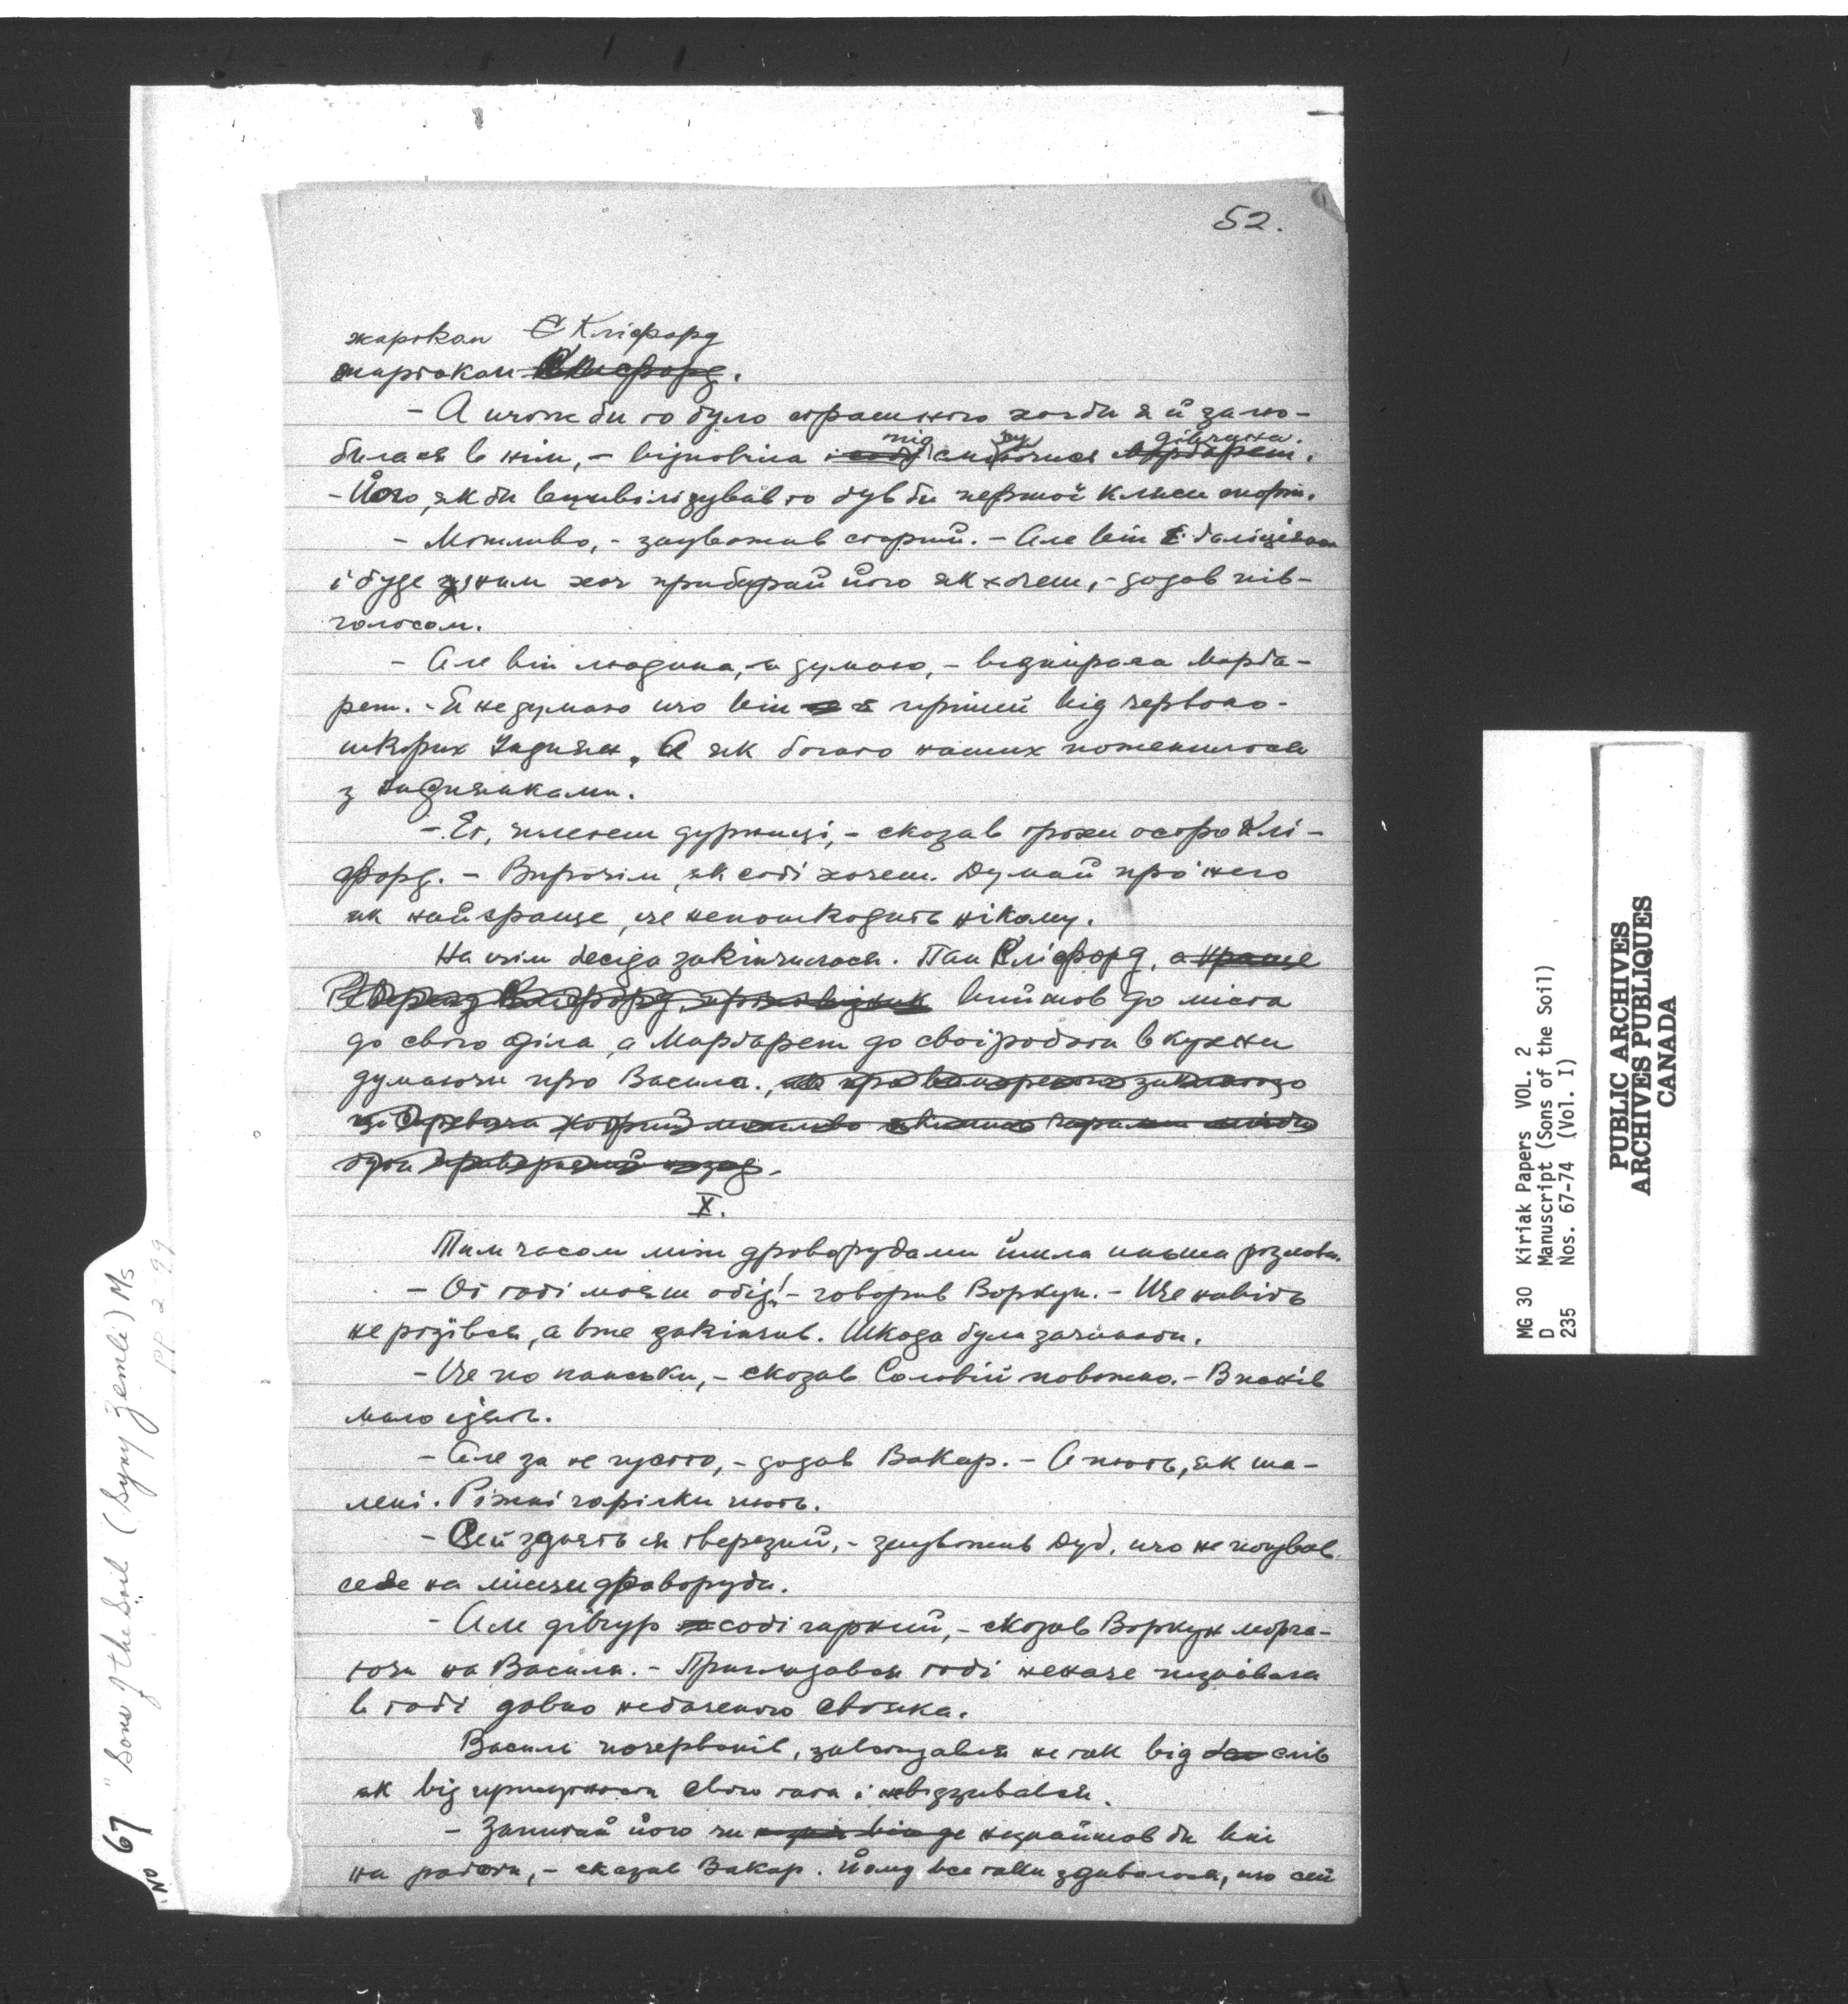 52.
жарткан Кліфорд
жартакам
- А щож би то було страшного хочби я й залю-
билася в нім, - відповіла підсміхуючися дівчина.
- Його, як би вицивілізував то був би першої кляси спорт.
- Можливо, - зауважив старий. - Але він є ґаліціян
і буде ним хоч прибирай його як хочеш, - додав пів-
голосом.
- Але він людина, я думаю, - відпирала Марґа-
рет. - Я не думаю що він є гірший від червоно-
шкірих Індиян. А як богато наших поженилося
з индиянками.
- Ет, плетеш дурниці, - сказав трохи остро Клі-
форд. - Впрочім, як собі хочеш. Думай про него
як найкраще, це непошкодить нікому.
На цім бесіда закінчилася. Пан Кліфорд, вийшов до міста
до свого діла, а Марґарет до своїроботи в кухни
думаючи про Василя.
X.
Тим часом між дроворубами йшла иньша розмова.
- От тобі маєш обід! - говорив Воркун. - Ще навіть
не розівся, а вже закінчив. Шкода було зачинати.
- Це по панськи, - сказав Соловій поважно. - В панів
мало їдять.
- Але за те густо, - додав Вакар. - А пють, як ша-
лені. Ріжні горівки пють.
- Сей здаєтьця тверезий, - зауважив Дуб, що не почував
себе на місци дроворуба.
- Але дівчур собі гарний, - сказав Воркун морга-
ючи на Василя. - Приглядався тобі неначе пізнавала
в тобі давно небаченого свояка.
Василь почервонів, завстидався не так від слів
як від притомности свого тата і невідзивався.
- Запитай його чи незнайшов би він
на роботи, - сказав Вакар. Йому все таки здавалося, що сей
No 67 "Sons of the Soil (Syny Zemli) Ms
PP 2-99
MG 30 Kiriak Papers VOL. 2
D Manuscript (Sons of the Soil)
235 Nos. 67-74 (Vol. I)
PUBLIC ARCHIVES
ARCHIVES PUBLIQUES
CANADA